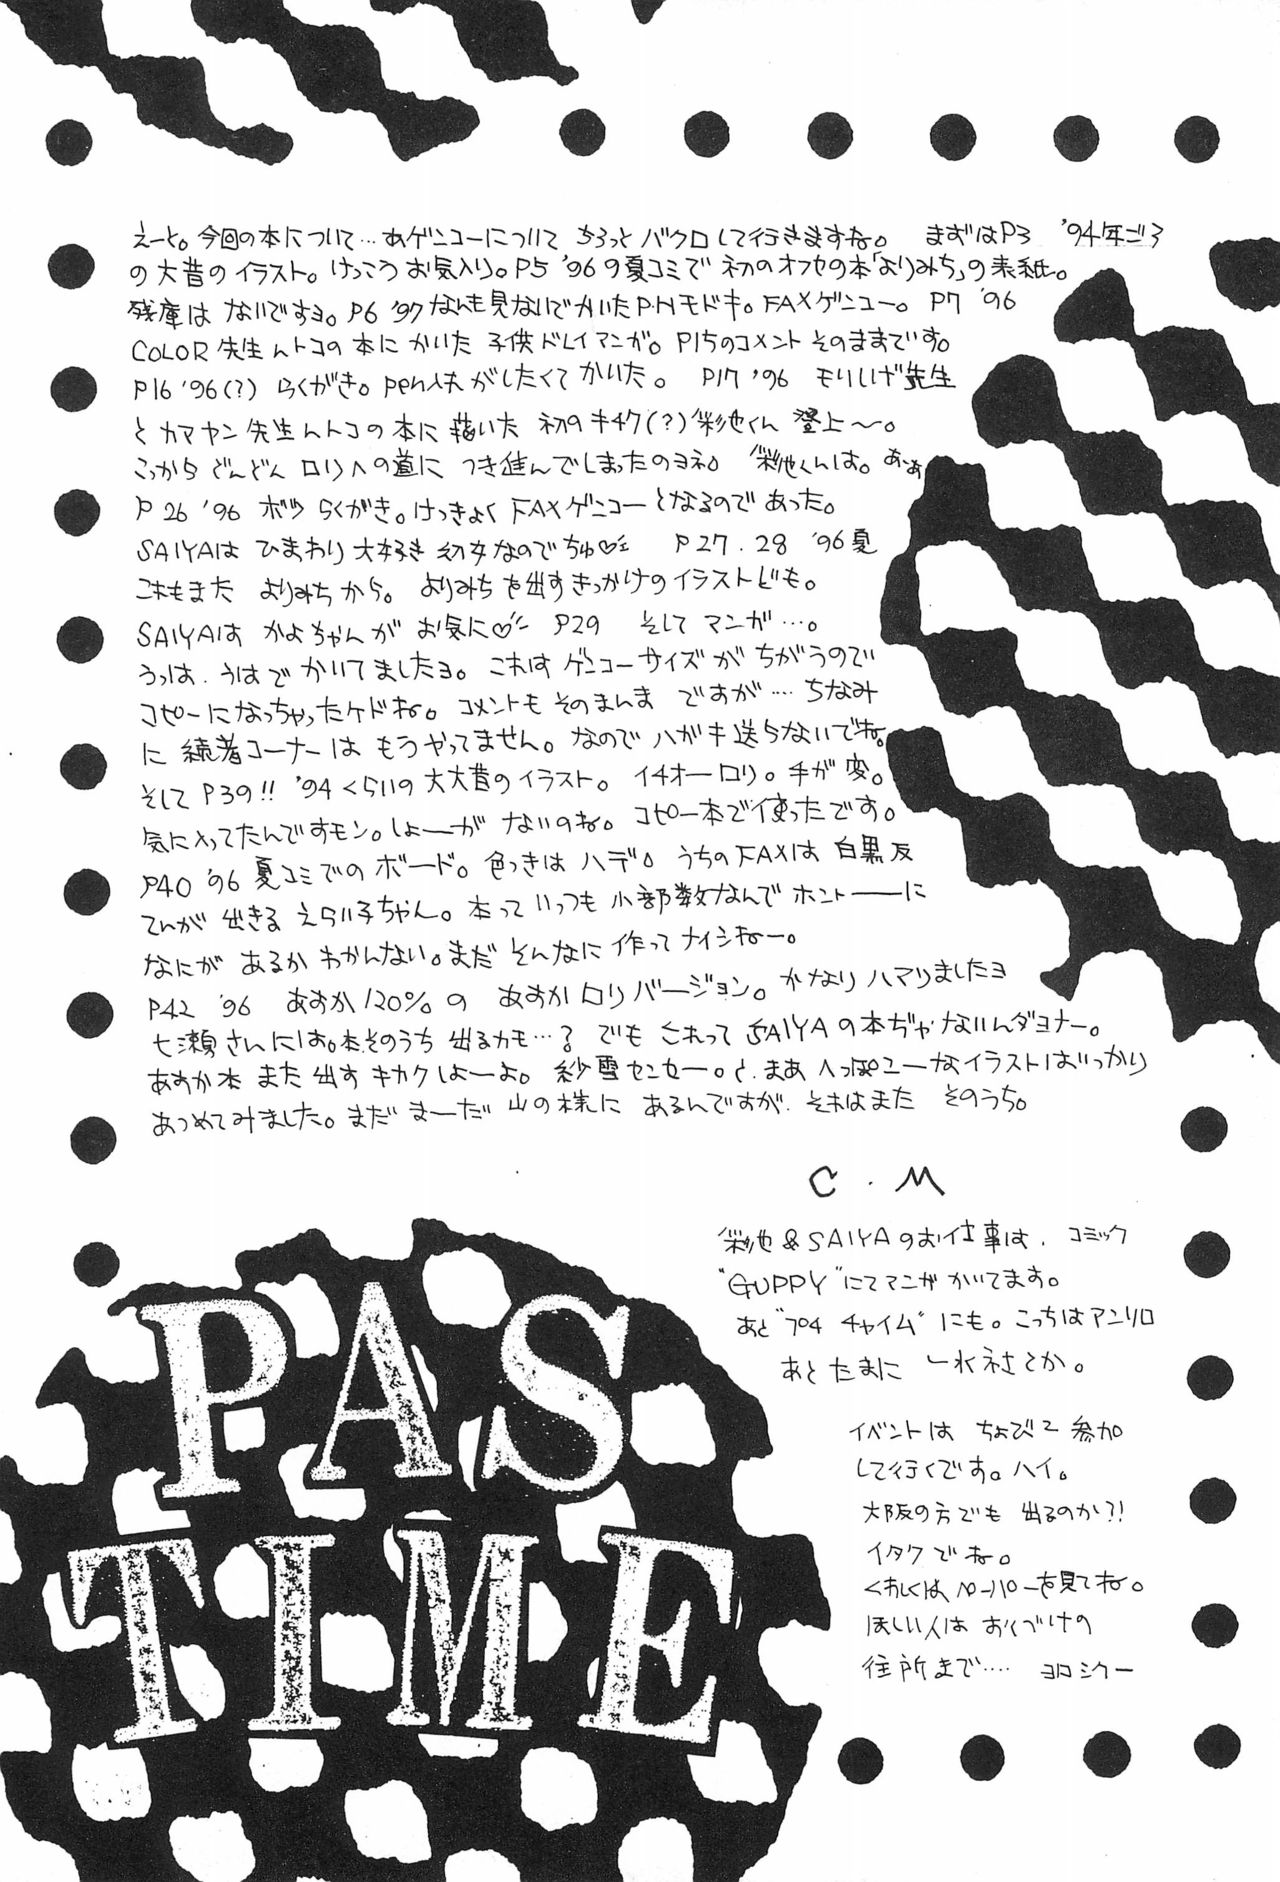 えーと。今回の本について…あゲンコーについて ちろっとバクロして行きますね。 まずはP3 '94年ごろ
の大昔のイラスト。けっこうお気入り。P5 '96の夏コミで初のオフセの本「よりみち」の表紙。
残庫はないですヨ。P6 '97なんも見ないでかいたP.Nモドキ。FAXゲンコー。 P7 '96
COLOR先生んトコの本にかいた子供ドレイマンガ。P15のコメントそのままです。
P16 '96(?) らくがき。pen入れがしたくてかいた。 P17 '96 モリしげ先生
とカマヤン先生んトコの本に描いた初のキチク(?)彩池くん登上〜。
こっからどんどんロリへの道につき進んでしまったのヨネ。 彩池くんは。ああ
P26 '96 ボツらくがき。けっきょくFAXゲンコーとなるのであった。
SAIYAはひまわり大好き幼女なのでちゅ♡ P27.28 '96夏
これもまたよりみちから。よりみちを出すきっかけのイラストども。
SAIYAはかよちゃんがお気に♡ P29 そしてマンガ…。
うっは、うはでかいてましたヨ。これはゲンコーサイズがちがうので
コピーになっちゃったケドね。コメントもそのまんまですが…ちなみ
に読者コーナーはもうやってません。なのでハガキ送らないでね。
そしてP39!! '94くらいの大大昔のイラスト。イチオーロリ。手が変。
気に入ってたんですモン。しょーがないのね。コピー本で使ったです。
P40 '96夏コミでのボード。色つきはハデ。うちのFAXは白黒反
てんが出きるえらい子ちゃん。本っていっつも小部数なんでホントーーに
なにがあるかわかんない。まだそんなに作ってナイシねー。
P42 '96 あすか120%のあすかロリバージョン。かなりハマりましたヨ
七瀬さんには。本そのうち出るカモ…? でもこれってSAIYAの本ぢゃないんダヨナー。
あすか本また出すキカクしよーよ。紗雪センセー。と、まあへっぽこーなイラストばっかり
あつめてみました。まだまーだ山の様にあるんですが、それはまたそのうち。
C.M
彩池&SAIYAのお仕事は、コミック
"GUPPY"にてマンガかいてます。
あと"プチチャイム"にも。こっちはアンソロ
あとたまに一水社とか。
イベントはちょびっと参加
して行くです。ハイ。
大阪の方でも出るのか?!
イタクでね。
くわしくはペーパーを見てね。
ほしい人はおくづけの
住所まで…. ヨロシクー
PAS
TIME